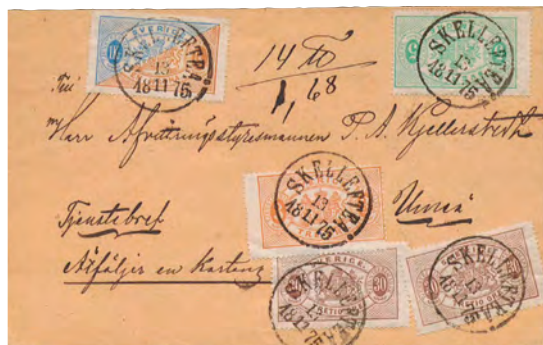 SVERIGE
SKELLEFTEA
13
18 11 75
SKELLEFTEA
13
18 11 75
14 ℔
1,68
Till
Herr Afvittringsstyresmannen P. A. Kjellerstedt
SKELLEFTEA
13
18 11 75
Tjenstebref
Umeå
Åtföljer en Kartong
SVERIGE
30
SKELLEFTEA
13
18 11 75
SKELLEFTEA
13
18 11 75